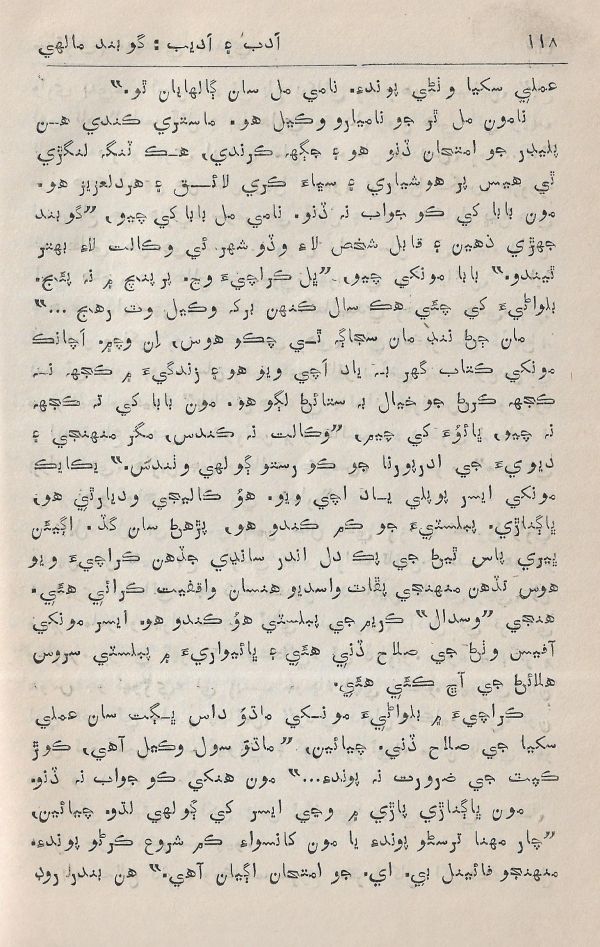 ١١٨ ادب ۽ اديب : گوبند مالهي
عملي سکيا وٺڻي پوندءِ. نامي مل سان ڳالهايان ٿو.”
نامون مل ٿر جو ناميارو وڪيل هو. ماستري ڪندي هن
پليڊر جو امتحان ڏنو هو ۽ جڳهه ڪرندي، هڪ ٽنگ لنگڙي
ٿي هيس پر هوشياري ۽ سڀاءَ ڪري لائق ۽ هردلعزيز هو.
مون بابا کي ڪو جواب نه ڏنو. نامي مل بابا کي چيو، “گوبند
جهڙي ذهين ۽ قابل شخص لاءِ وڏو شهر ئي وڪالت لاءِ بهتر
ٿيندو.” بابا مونکي چيو، “ڀل ڪراچيءَ وڃ. پرپنچ ۾ نه پئيج.
بلواڻيءَ کي چئي هڪ سال ڪنهن برک وڪيل وٽ رهج ...”
مان ڄڻ ننڊ مان سجاڳ ٿي چڪو هوس، اِن وچ۾. اچانڪ
مونکي ڪتاب گهر به ياد اچي ويو هو ۽ زندگيءَ ۾ ڪجهه نه
ڪجهه ڪرڻ جو خيال به ستائڻ لڳو هو. مون بابا کي نه ڪجهه
نه چيو، ڀاؤءَ کي چيم، “وڪالت نه ڪندس، مگر منهنجي ۽
ديويءَ جي ادرپورنا جو ڪو رستو ڳولهي وٺندس.” يڪايڪ
مونکي ايسر پوپلي ياد اچي ويو. هؤ ڪاليجي وديارٿي هو،
ڀاڳناڙي. پبلسٽيءَ جو ڪم ڪندو هو، پڙهڻ سان گڏ. اڳيئن
ڀيري پاس ٿيڻ جي پڪ دل اندر سانڍي جڏهن ڪراچيءَ ويو
هوس تڏهن منهنجي ڀڦاٽ واسديو هنسان واقفيت ڪرائي هئي.
هنجي “وسدال” ڪريم جي پبلسٽي هؤ ڪندو هو. ايسر مونکي
آفيس وٺڻ جي صلاح ڏني هئي ۽ ڀائيواريءَ ۾ پبلسٽي سروس
هلائڻ جي آڇ ڪئي هئي.
ڪراچيءَ ۾ بلواڻيءَ مونکي ماڌؤ داس ڀڳت سان عملي
سکيا جي صلاح ڏني. چيائين، “ماڌؤ سول وڪيل آهي، ڪوڙ
ڪپت جي ضرورت نه پوندءِ...” مون هنکي ڪو جواب نه ڏنو.
مون ڀاڳناڙي پاڙي ۾ وڃي ايسر کي ڳولهي لڌو. چيائين،
“چار مهنا ترسڻو پوندءِ يا مون کانسواءِ ڪم شروع ڪرڻو پوندءِ.
منهنجو فائينل بي. اي. جو امتحان اڳيان آهي.” هن بندر روڊ